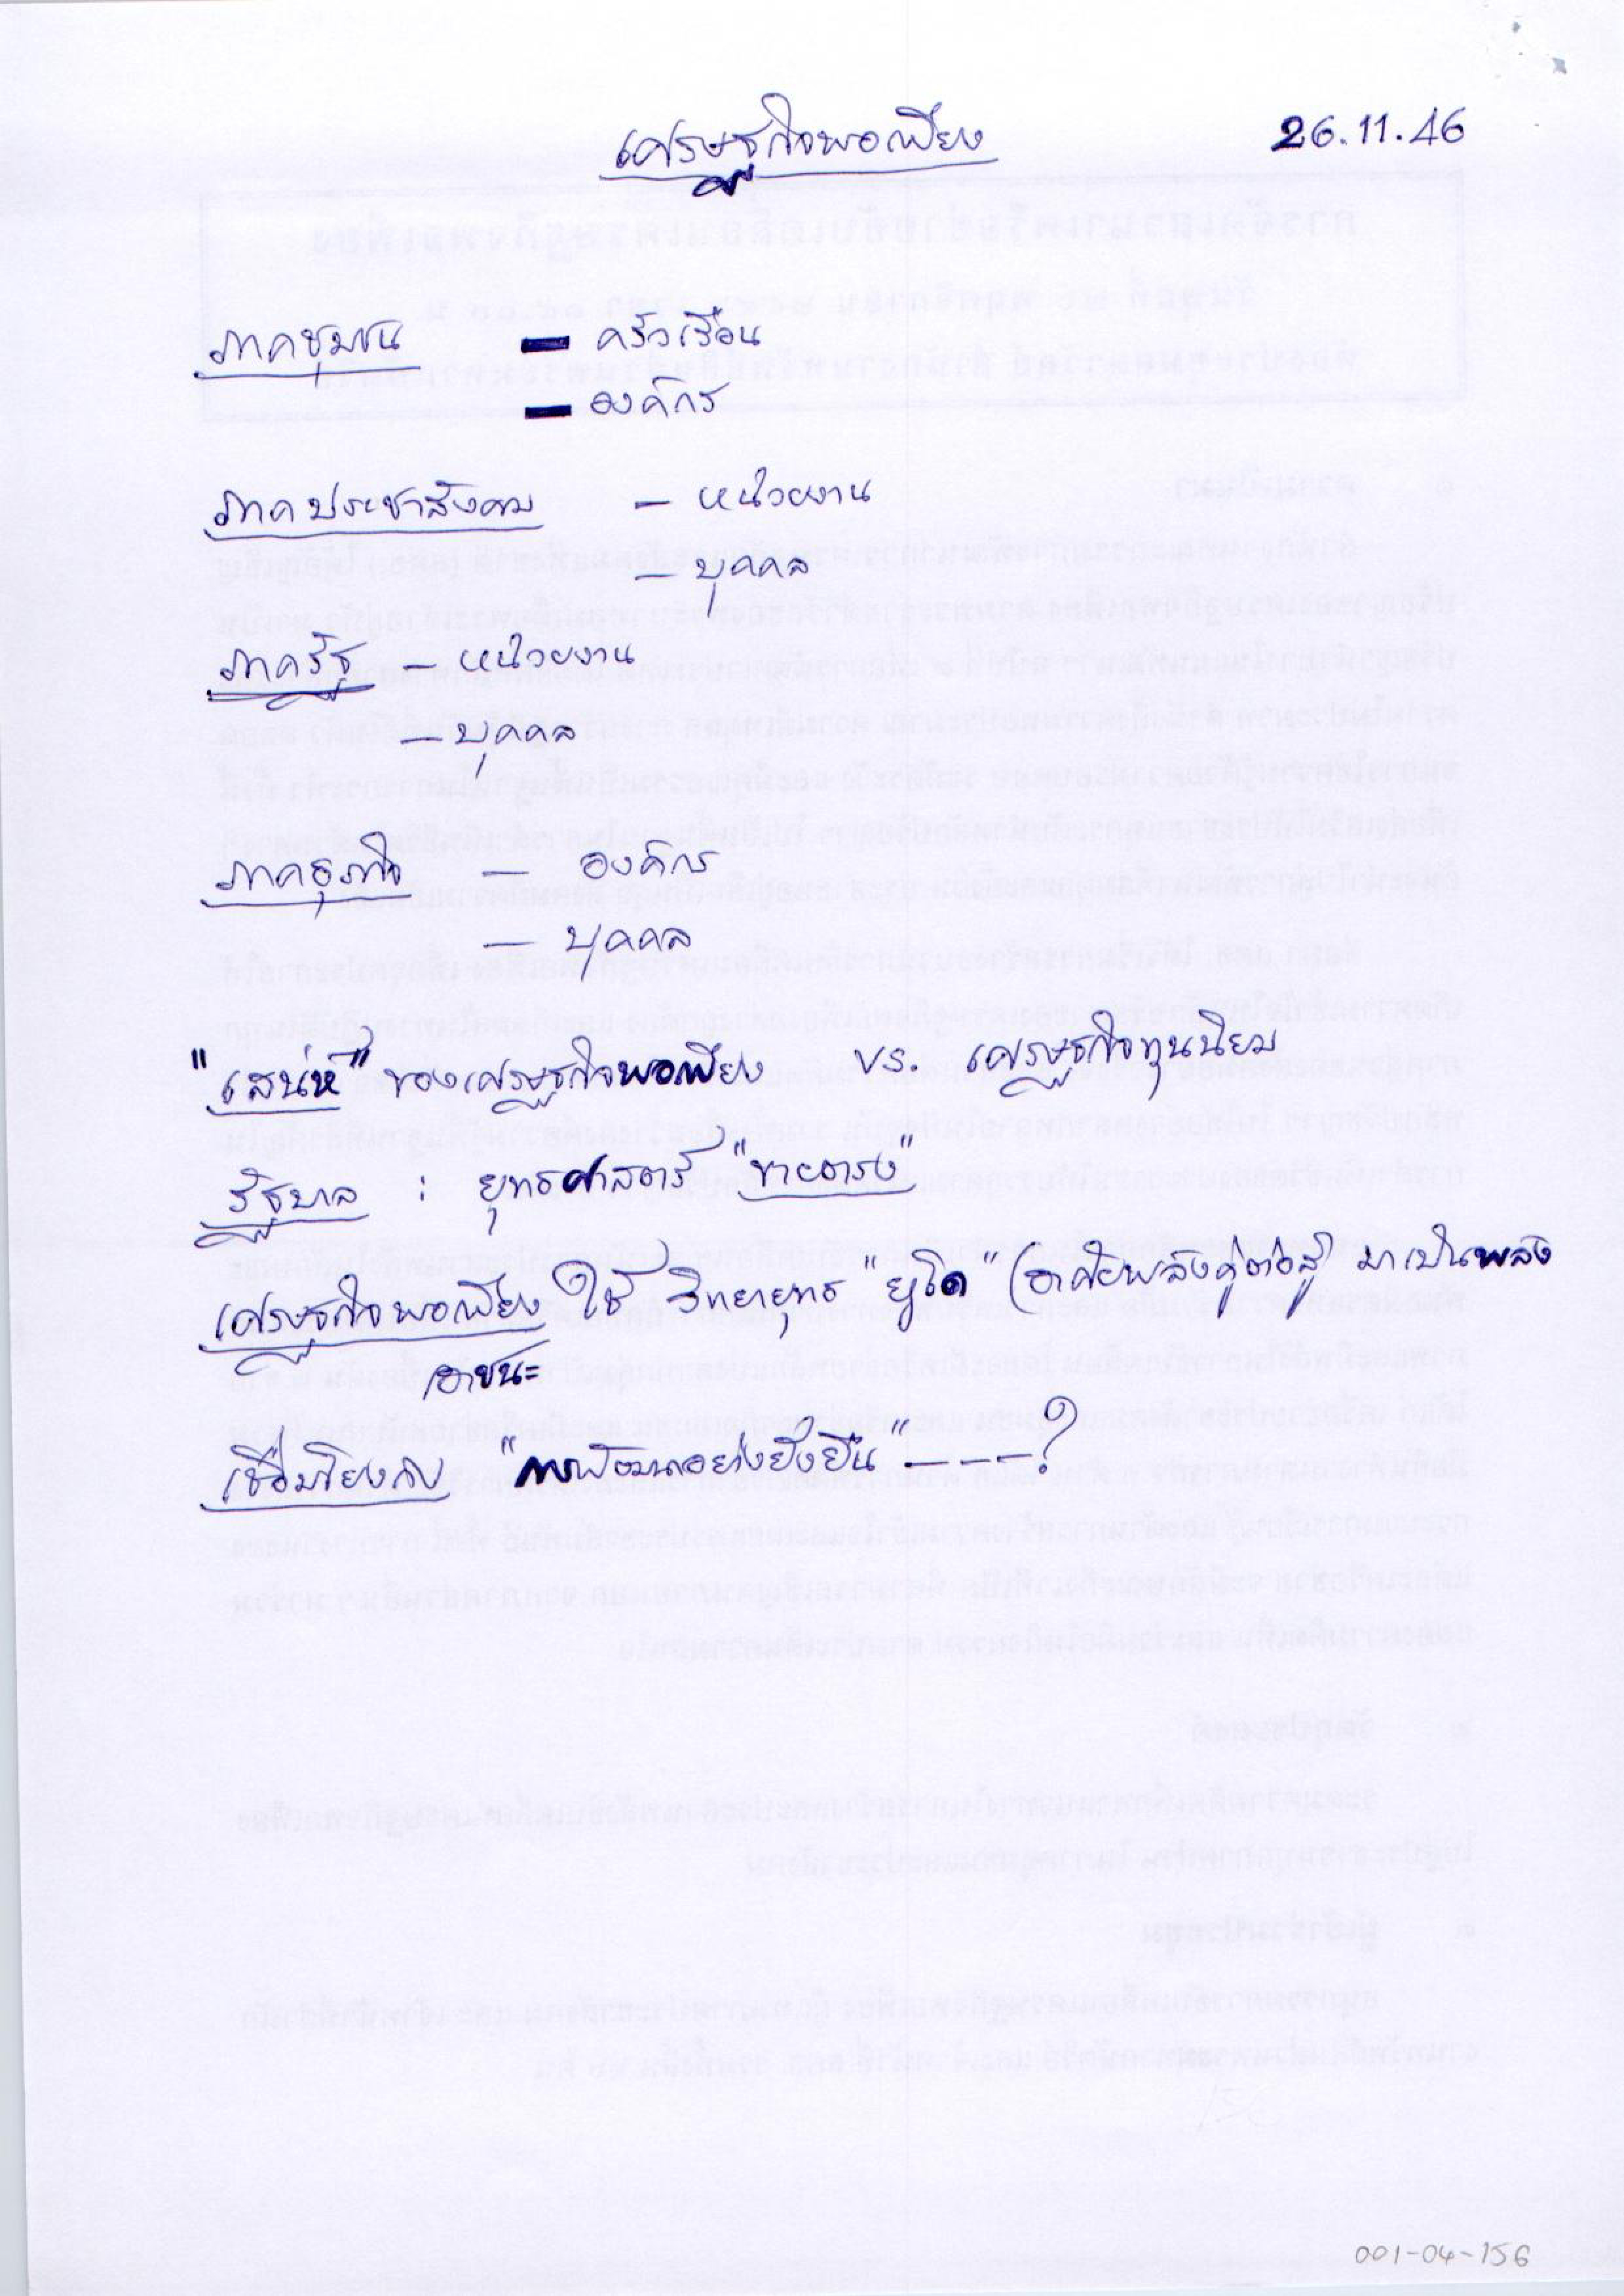 เศรษฐกิจพอเพียง 26.11.46
ภาคชุมชน — ครัวเรือน
— องค์กร
ภาคประชาสังคม — หน่วยงาน
— บุคคล
ภาครัฐ — หน่วยงาน
— บุคคล
ภาคธุรกิจ — องค์กร
— บุคคล
"เสน่ห์" ของเศรษฐกิจพอเพียง vs. เศรษฐกิจทุนนิยม
รัฐบาล : ยุทธศาสตร์ "ขายตรง"
เศรษฐกิจพอเพียง ใช้ วิทยายุทธ "ยูโด" (อาศัยพลังคู่ต่อสู้) มาเป็นพลัง
เอาชนะ
เชื่อมโยงกับ "การพัฒนาอย่างยั่งยืน" ----?
001-04-156